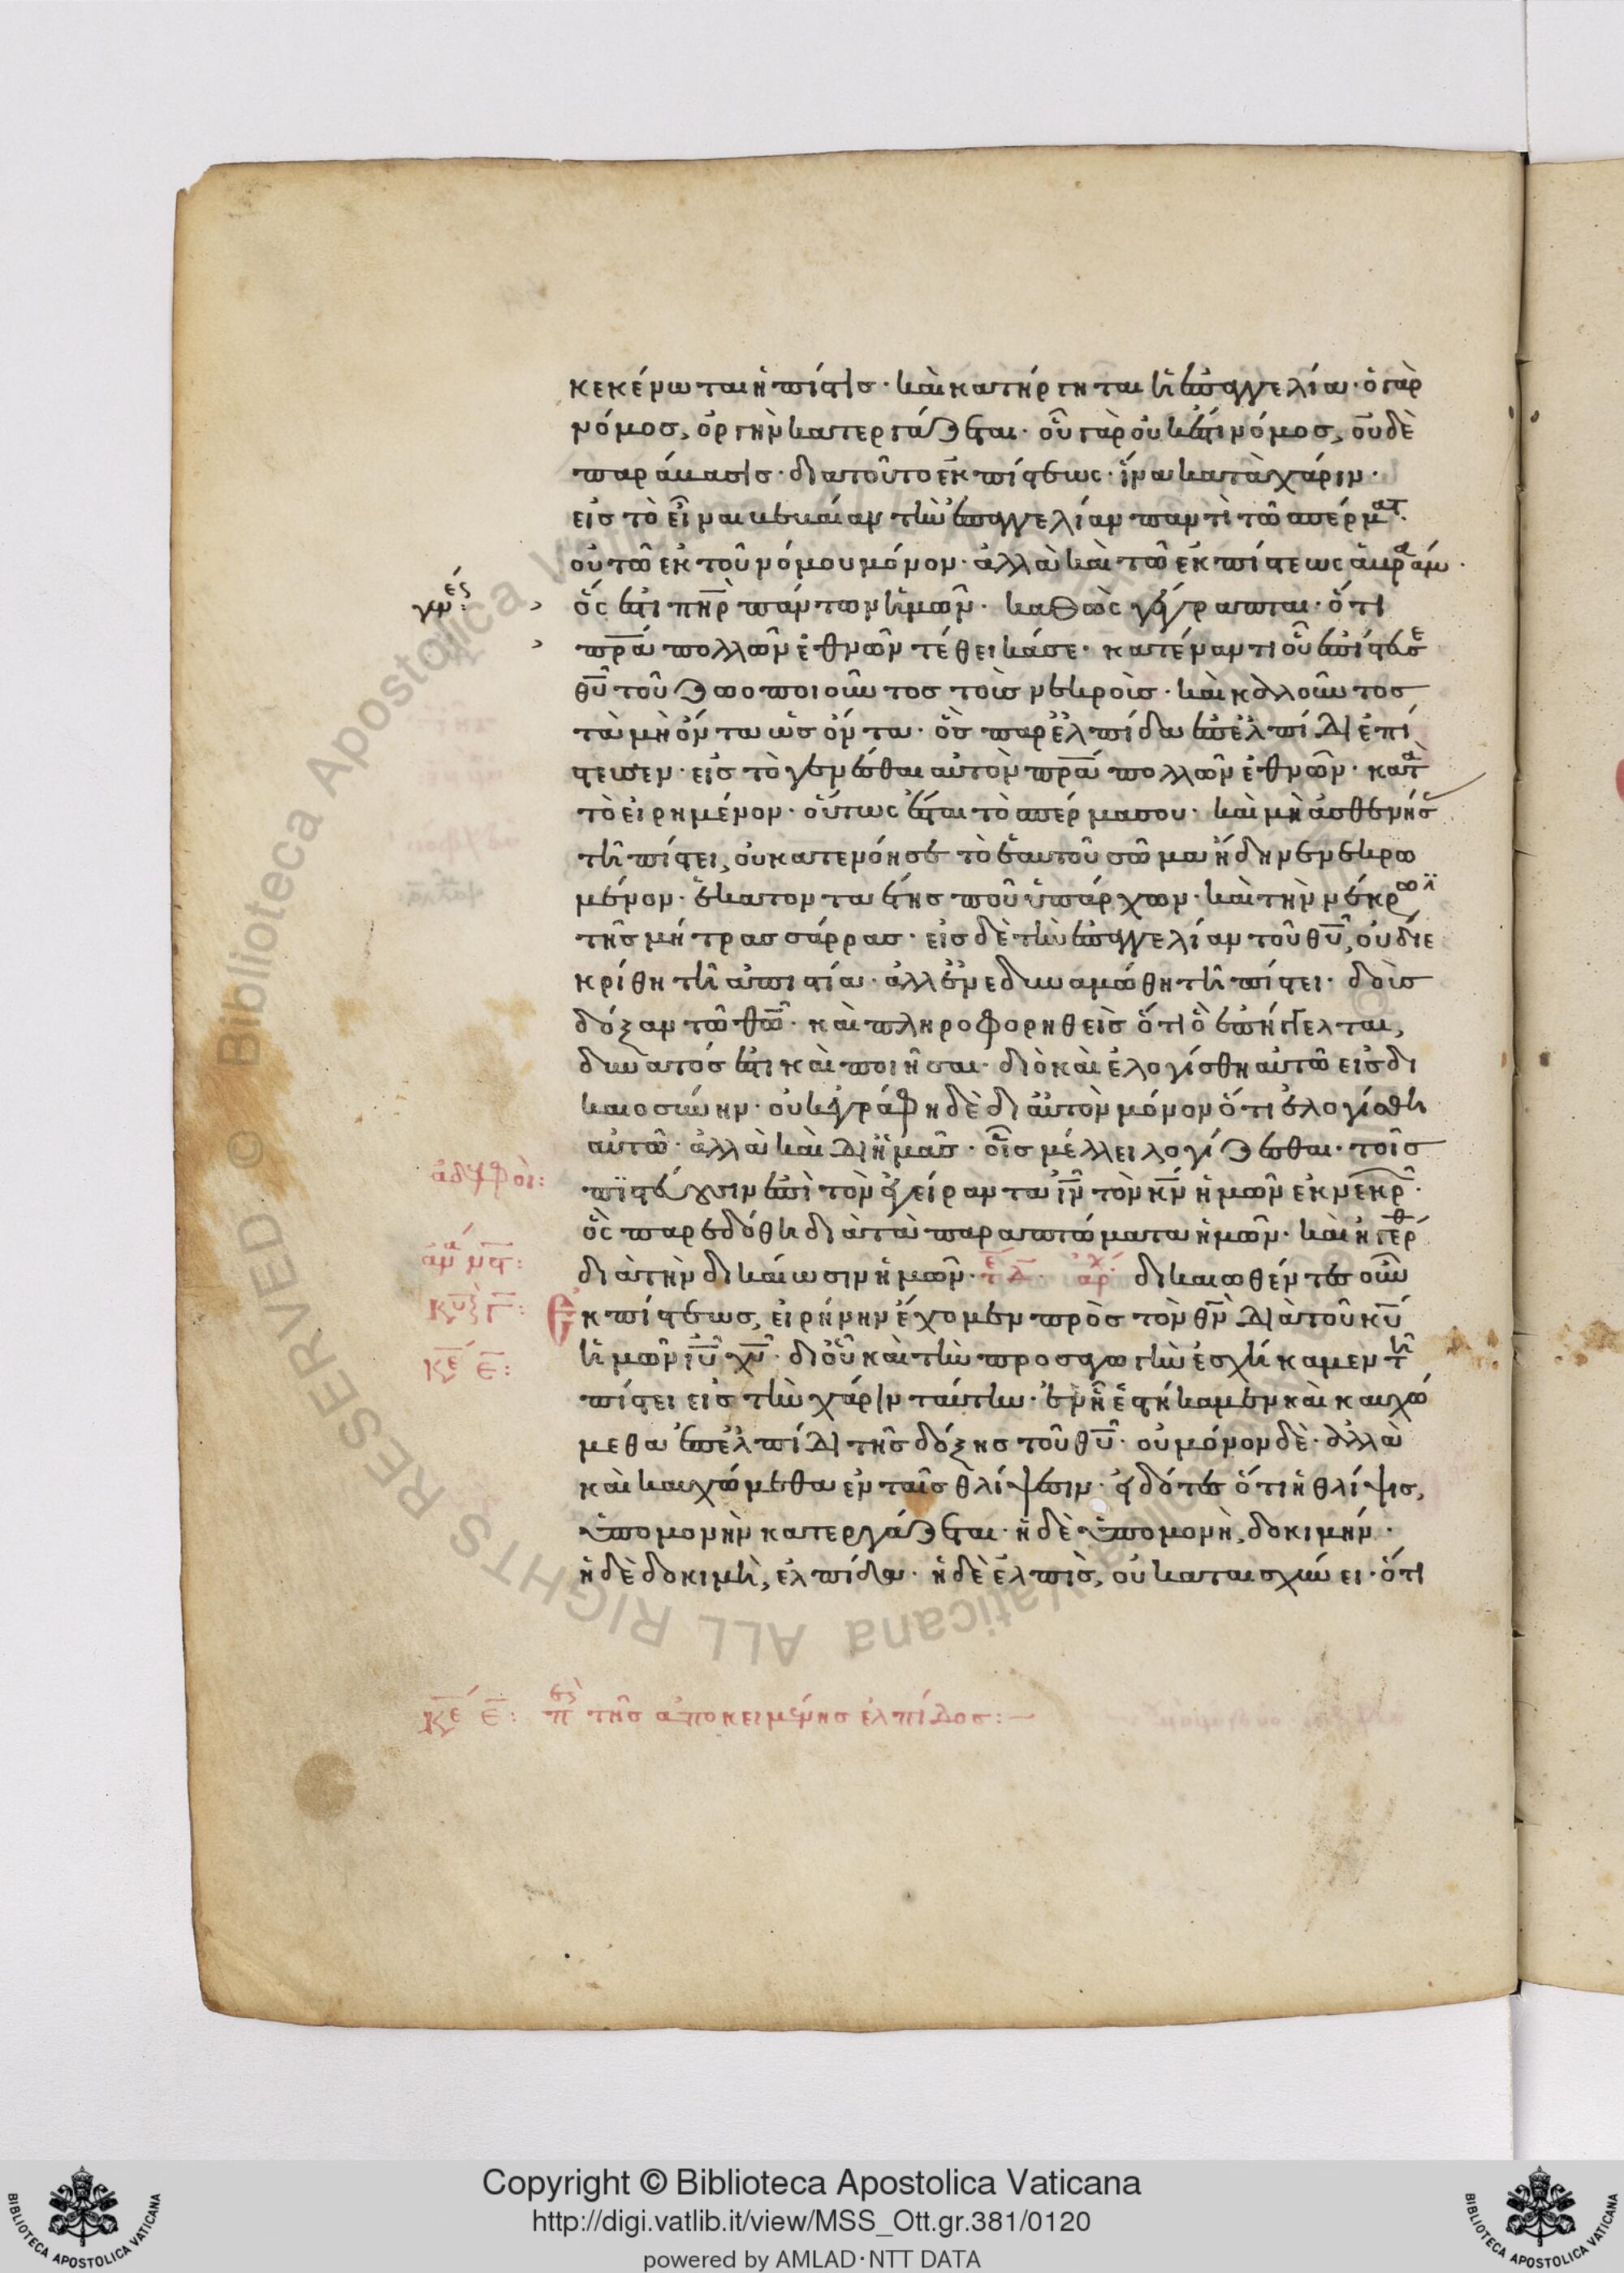 κεκένωται ἡ πίστις· καὶ κατήργηται ἡ ἐπαγγελία· ὁ γὰρ
νόμος, ὀργὴν κατεργάζεται· οὗ γὰρ οὐκ ἔστι νόμος, οὐδὲ
παράβασις· διατοῦτο ἐκ πίστεως· ἵνα κατὰ χάριν·
εἰς τὸ εἶναι βεβαίαν τὴν ἐπαγγελίαν παντὶ τῶ σπέρματ
οὐ τῶ ἐκ τοῦ νόμου μόνον· ἀλλὰ καὶ τῶ ἐκ πίστεως ἀβραάμ·
γεν εσ: ὅς ἐστι πηρ πάντων ἡμῶν· καθὼς γέγραπται· ὅτι
πρα πολλῶν ἐθνῶν τέθεικά σε· κατέναντι οὗ ἐπίστευσε
θυ τοῦ ζωοποιοῦντος τοὺς νεκροὺς· καὶ καλοῦντος
τὰ μὴ ὄντα ὡς ὄντα· ὃς παρ ἐλπίδα ἐπ ἐλπίδι ἐπί
στευσεν· εἰς τὸ γενέσθαι αὐτὸν πρα πολλῶν ἐθνῶν· κατὰ
τὸ εἰρημένον· οὕτως ἔσται τὸ σπέρμα σου· καὶ μὴ ἀσθενήσ
τῆ πίστει, οὐ κατενόησε τὸ ἑαυτοῦ σῶμα ἤδη νενεκρω
μένον· ἑκατονταέτης που ὑπάρχων· καὶ τὴν νέκρω
τῆς μήτρας σάρρας· εἰς δὲ τὴν ἐπαγγελίαν τοῦ θυ, οὐ διε
κρίθη τῆ ἀπιστία· ἀλλ ἐνεδυναμώθη τῆ πίστει· δοὺς
δόξαν τῶ θω· καὶ πληροφορηθεὶς ὅτι ὃ ἐπήγγελται,
δυνατός ἐστι καὶ ποιῆσαι· διὸ καὶ ἐλογίσθη αὐτῶ εἰς δι
καιοσύνην· οὐκ ἐγράφη δὲ δι αὐτὸν μόνον ὅτι ἐλογίσθη
αὐτῶ· ἀλλὰ καὶ δι ἡμᾶς· οἷς μέλλει λογίζεσθαι· τοῖς
ἀδελφοὶ: πιστεύουσιν ἐπὶ τὸν ἐγείραντα ιν τὸν κν ἡμῶν ἐκ νεκρ·
ὃς παρεδόθη διὰ τὰ παραπτώματα ἡμῶν· καὶ ἠγέρθ
διὰ τὴν δικαίωσιν ἡμῶν· τελ· ἀρχ· δικαιωθέντες οὖν
κυ γ: Ἐκ πίστεως, εἰρήνην ἔχομεν πρὸς τὸν θν διὰ τοῦ κυ
κε ε: ἡμῶν ιυ χυ· δι οὗ καὶ τὴν προσαγωγὴν ἐσχήκαμεν τῆ
πίστει εἰς τὴν χάριν ταύτην· ἐν ἧ ἑστήκαμεν καὶ καυχώ
μεθα ἐπ ἐλπίδι τῆς δόξης τοῦ θυ· οὐ μόνον δὲ· ἀλλὰ
καὶ καυχώμεθα ἐν ταῖς θλίψεσιν· εἰδότες ὅτι ἡ θλίψις,
ὑπομονὴν κατεργάζεται· ἡ δὲ ὑπομονὴ, δοκιμήν·
ἡ δὲ δοκιμὴ, ἐλπίδα· ἡ δὲ ἐλπὶς, οὐ καταισχύνει· ὅτι
κε ε: πε τῆς ἀποκειμένης ἐλπίδος:
Biblioteca Apostolica Vaticana ALL RIGHTS RESERVED ©
Copyright © Biblioteca Apostolica Vaticana
http://digi.vatlib.it/view/MSS_Ott.gr.381/0120
powered by AMLAD·NTT DATA
BIBLIOTECA APOSTOLICA VATICANA
BIBLIOTECA APOSTOLICA VATICANA